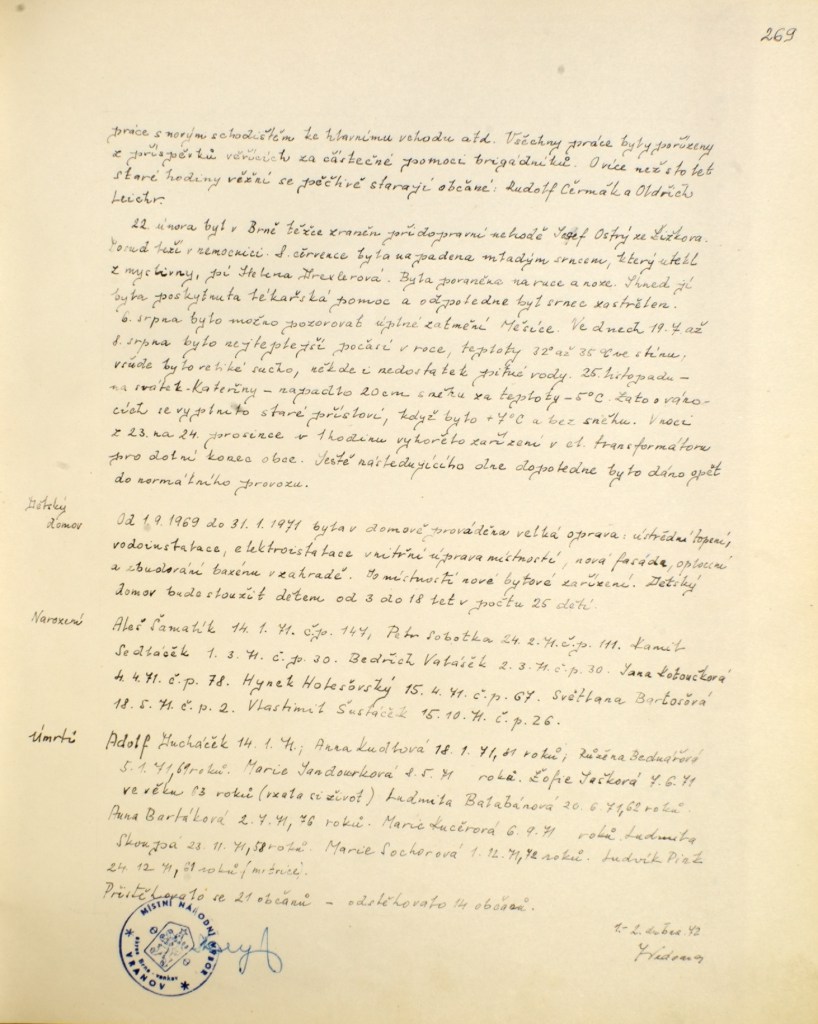 269
práce s novým schodištěm ke hlavnímu vchodu atd. Všechny práce byly pořízeny
z příspěvků věřících za částečné pomoci brigádníků. O více než sto let
staré hodiny věžní se pěčlivě starají občané: Rudolf Čermák a Oldřich
Leichr.
22. února byl v Brně těžce zraněn při dopravní nehodě Josef Ostrý ze Lížkova.
Dosud leží v nemocnici. 8. července byla napadena mladým srncem, který utekl
z myslivny, pí Helena Drexlerová. Byla poraněna na ruce a noze. Ihned jí
byla poskytnuta lékařská pomoc a odpoledne byl srnec zastřelen.
6. srpna bylo možno pozorovat úplné zatmění Měsíce. Ve dnech 19.7 až
8. srpna bylo nejteplejší počasí v roce, teploty 32° až 35°C ve stínu,
všude bylo veliké sucho, někde i nedostatek pitné vody. 25. listopadu –
na svátek Kateřiny – napadlo 20 cm sněhu za teploty – 5°C. Zato o váno-
cích se vyplnilo staré přísloví, když bylo +7°C a bez sněhu. V noci
z 23. na 24. prosince v 1 hodinu vyhořelo zařízení v el. transformátoru
pro dolní konec obce. Ještě následujícího dne dopoledne bylo dáno opět
do normálního provozu.
Dětský
domov
Od 1.9.1969 do 31.1.1971 byla v domově prováděna velká oprava: ústřední topení,
vodoinstalace, elektroistalace vnitřní úprava místností, nová fasáda, oplocení
a zbudování bazénu v zahradě. Do místností nové bytové zařízení. Dětský
domov bude sloužit dětem od 3 do 18 let v počtu 25 dětí.
Narození
Aleš Šamalík 14. 1. 71. čp. 147, Petr Sobotka 24. 2. 71. č.p. 111. Kamil
Sedláček 1. 3. 71. č. p. 30. Bedřich Valášek 2. 3. 71. č.p. 30. Jana Kotoučková
4. 4. 71. č.p. 78. Hynek Holešovský 15. 4. 71. č.p. 67. Světlana Bartošová
18. 5. 71. č.p. 2. Vlastimil Šustáček 15. 10. 71. č.p. 26.
Úmrtí
Adolf 14. 1. 71.; Anna Kudlová 18. 1. 71, 81 roků; Růžena Bednářová
5. 1. 71, 69 roků. Marie Jandourková 8. 5. 71 roků. Žofie Jašková 7. 6. 71
ve věku 63 roků (vzala si život) Ludmila Balabánová 20. 6. 71, 62 roků.
Anna Bartáková 2. 7. 71, 76 roků. Marie Kučerová 6. 9. 71 roků. Ludmila
Skoupá 23. 11. 71, 58 roků. Marie Sochorová 1. 12. 71, 72 roků. Ludvík
24. 12. 71, 61 roků (mrtvice).
Přistěhovalo se 21 občanů – odstěhovalo 14 občanů.
1.– 2. duben 72
MÍSTNÍ NÁRODNÍ VÝBOR
VRANOV